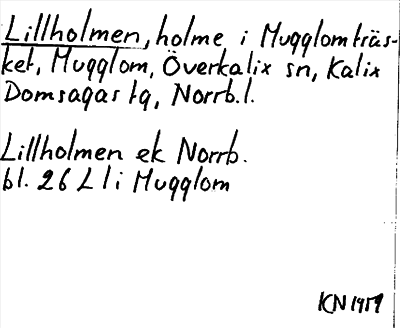 Lillholmen, holme i Mugglomträs-
ket, Mugglom, Överkalix sn, Kalix
Domsagas tg, Norrb.l.
Lillholmen ek Norrb.
bl. 26 L l i Mugglom
KN 1959